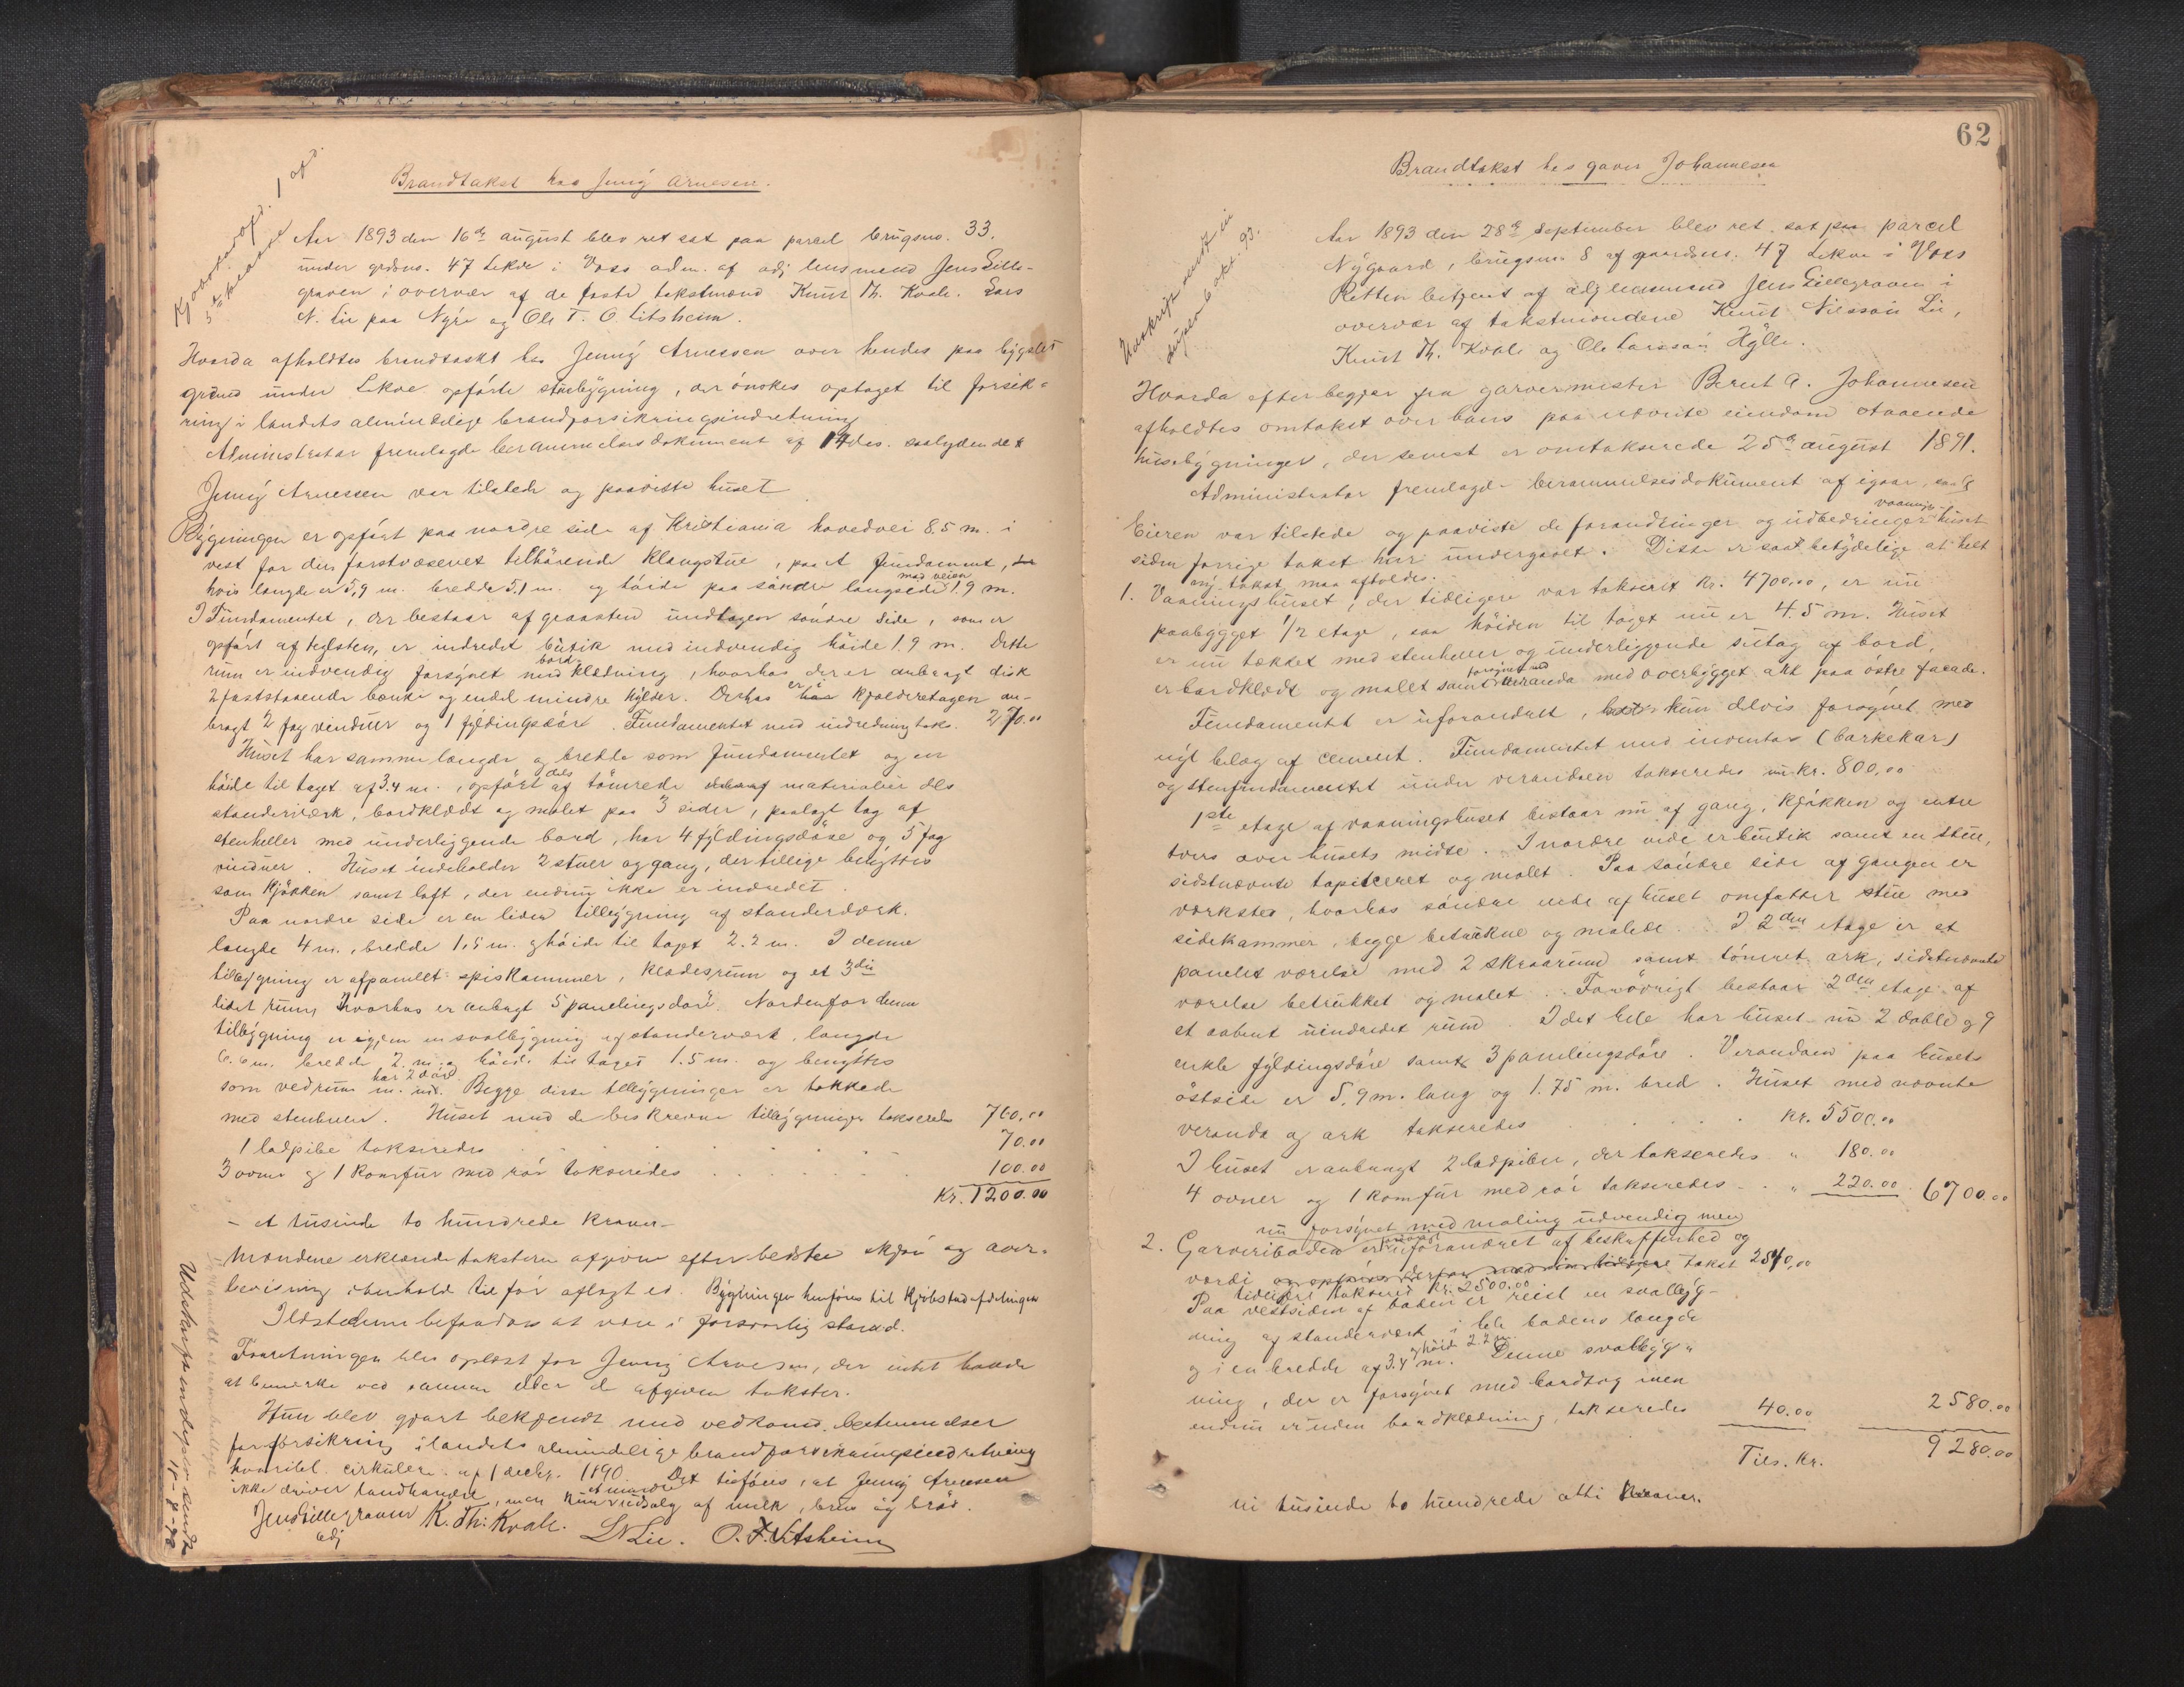 Brandtakst hos Jenny Arnesen.
Kjøbstadafd. 1 afd.
5te klasse
Aar 1893 den 16de august blev ret sat paa parcel brugsno. 33.
under grdsno. 47 Lekve i Voss adm. af adj lensmand Jens Lille-
graven i overvær af de faste takstmænd Knut Th. Kvale. Lars
N. Lie paa Nyre og Ole T. O. Litsheim.
Hvorda afholdtes brandtakst hos Jenny Arnessen over hendes paa bygslet
grund under Lekve opførte stuebygning, der ønskes optaget til forsik-
ring i landets almindelige brandforsikringsindretning
Administrator fremlagde berammelsesdokument af 14 ds. saalydendes
Jenny Arnessen var tilstede og paaviste huset
Bygningen er opført paa nordre side af Kristiania hovedvei 85 m. i
vest for den forstvæsenet tilhørende Klangstue, paa et fundament,
hvis længde er 5,9 m. bredde 5,1 m. og høide paa søndre langside mod veien 1.9 m.
I Fundamentet, der bestaar af graasten undtagen søndre side, som er
opført af teglsten, er indredet butik med indvendig høide 1.9 m. Dette
rum er indvendig forsynet med bordklædning, hvorhos der er anbragt disk
2 faststaaende bænke og endel mindre hylder. Derhos er i kjelderetagen an-
bragt 2 fag vinduer og 1 fyldingsdør. Fundamentet med indredning taks. 270.00
Huset har samme længde og bredde som fundamentet og en
høide til taget af 3.4 m., opført dels af tømrede materialier dels
standerværk, bordklædt og malet paa 3 sider, paalagt tag af
stenheller med underliggende bord, har 4 fyldingsdøre og 5 fag
vinduer. Huset indeholder 2 stuer og gang, der tillige benyttes
som kjøkken samt loft, der endnu ikke er indredet.
Paa nordre side er en liden tilbygning af standerværk.
længde 4 m., bredde 1,5 m. og høide til taget 2.2 m. I denne
tilbygning er afpanelt spiskammer, klædesrum og et 3die
lidet rum, hvorhos er anbragt 5 panelingsdøre. Nordenfor denne
tilbygning er igjen en svalbygning af standerværk, længde
6.6 m. bredde 2. m. og høide til taget 1.5 m. og benyttes
som vedrum m. m. har 2 døre. Begge disse tilbygninger er tækkede
med stenheller. Huset med de beskrevne tilbygninger takseredes 760,00
1 ladpibe takseredes . . . 70.00
3 ovne og 1 komfur med rør takseredes . . . . 100.00
Kr. 1200.00
- et tusinde to hundrede kroner -
Mændene erklærede taksten afgiven efter bedste skjøn og over-
bevisning i henhold til før aflagt ed. Bygningen henføres til Kjøbstadafdelingen
Ildstederne befandtes at være i forsvarlig stand.
Forretningen blev oplæst for Jenny Arnesen, der intet havde
at bemerke ved samme eller de afgivne takster.
Hun blev gjort bekjendt med vedkomd. bestemmelser
for forsikring i landets almindelige brandforsikringsindretning
hvoriblt. cirkulære af 1 decbr. 1890. Det tilføies, at Jenny Arnesen
ikke driver landhandel, men kun et mindre udsalg af melk, brus og brød.
Jens Lillegraven K. Th. Kvale. L N Lie. O. T. Litsheim
adj
Udskrift sendt
18-9-93
62
Brandtakst hos garver Johannesen
Udskrift sendt in
duplo 6 okt. 93.
Aar 1893 den 28de September blev ret sat paa parcel
Nygaard, brugsno. 8 af gaardsno. 47 Lekve i Voss
Retten betjent af adj lensmand Jens Lillegraven i
overvær af takstmændene Knut Nilsson Lie,
Knut Th. Kvale og Ole Larssøn Hylle.
Hvorda efter begjær fra garvermester Bernt A. Johannesen
afholdtes omtakst over hans paa nævnte eiendom staaende
husebygninger, der senest er omtakserede 25de august 1891.
Administrator fremlagde berammelsesdokument af igaar, saal
Eieren var tilstede og paaviste de forandringer og udbedringer vaanings-huset
siden forrige takst har undergaaet. Disse er saa betydelige at helt
ny takst maa afholdes.
1. Vaaningshuset, der tidligere var takseret Kr. 4700,00, er nu
paabygget 1/2 etage, saa høiden til taget nu er 4.5 m. Huset
er nu tækket med stenheller og underliggende sutag af bord,
er bordklædt og mallet samt forsynet med veranda med overbygget ark paa østre facade.
Fundamentet er uforandret, kun delvis forsynet med
nyt belæg af cement. Fundamentet med inventar (barkekar)
og stenfundamentet under verandaen takseredes nu kr. 800,00
1ste etage af vaaningshuset bestaar nu af gang, kjøkken og entre
tvers over husets midte. I nordre ende er butik samt en stue,
sidstnævnte tapitseret og malet. Paa søndre side af gangen er
værksted, hvorhos søndre ende af huset omfatter stue med
sidekammer, begge betrukne og malede. I 2den etage er et
panelet værelse med 2 skraarum samt tømret ark, sidstnævnte
værelse betrukket og malet. Forøvrigt bestaar 2den etage af
et aabent uindredet rum. I det hele har huset nu 2 doble og 9
enkle fyldingsdøre samt 3 panelingsdøre. Verandaen paa husets
østside er 5,9 m. lang og 1.75 m. bred. Huset med nævnte
veranda og ark takseredes . . . . . kr. 5500.00
I huset er anbragt 2 ladpiber, der takseredes " 180.00
4 ovner og 1 komfur med rør takseredes . . " 220.00 6700.00
nu forsynet med maling udvendig men
2. Garveriboden er forøvrigt uforandret af beskaffenhed og
værdi og opføres derfor med sin tidligere takst 2540,00
tidligere takseret kr. 2500.00
Paa vestsiden af boden er reist en svalbyg-
ning af standerværk i hele bodens længde
og i en bredde af 3.4 m. og høide 2.2 m. Denne svalbyg-
ning, der er forsynet med bordtag men
endnu er uden bordklædning, takseredes 40.00 2580.00
Tils. Kr. 9280.00
ni tusinde to hundrede otti kroner.